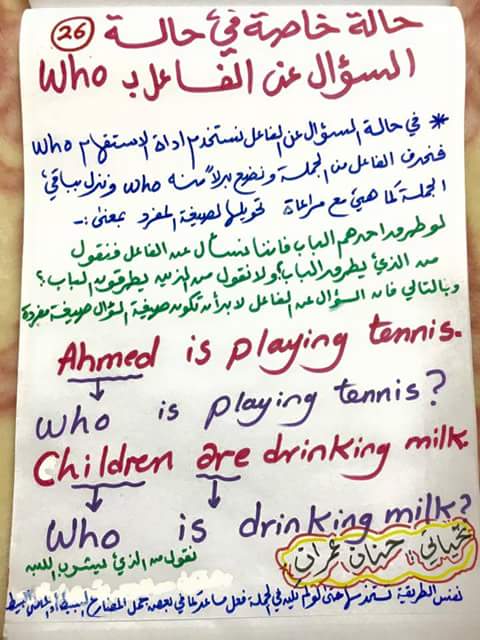 حالة خاصة في حالة (26)
السؤال عن الفاعل بـ Who
* في حالة السؤال عن الفاعل نستخدم اداة الاستفهام Who
فنحذف الفاعل من الجملة ونضع بدلاً منه who وننزل بباقي
الجملة كما هي مع مراعاة تحويلها لصيغة المفرد بمعنى :-
لو طرق احدهم الباب فاننا نسأل عن الفاعل فنقول
من الذي يطرق الباب؟ ولا نقول من الذين يطرقون الباب؟
وبالتالي فان السؤال عن الفاعل لابد أن تكون صيغة السؤال صيغة مفردة
Ahmed is playing tennis.
Who is playing tennis?
Children are drinking milk.
Who is drinking milk?
نقول من الذي يشرب اللبن
تحياتي: حنان عمران
نفس الطريقة نستخدمها حتى لو لم يكن في الجملة فعل مساعد كما في بعض جمل المضارع البسيط أو الماضي البسيط